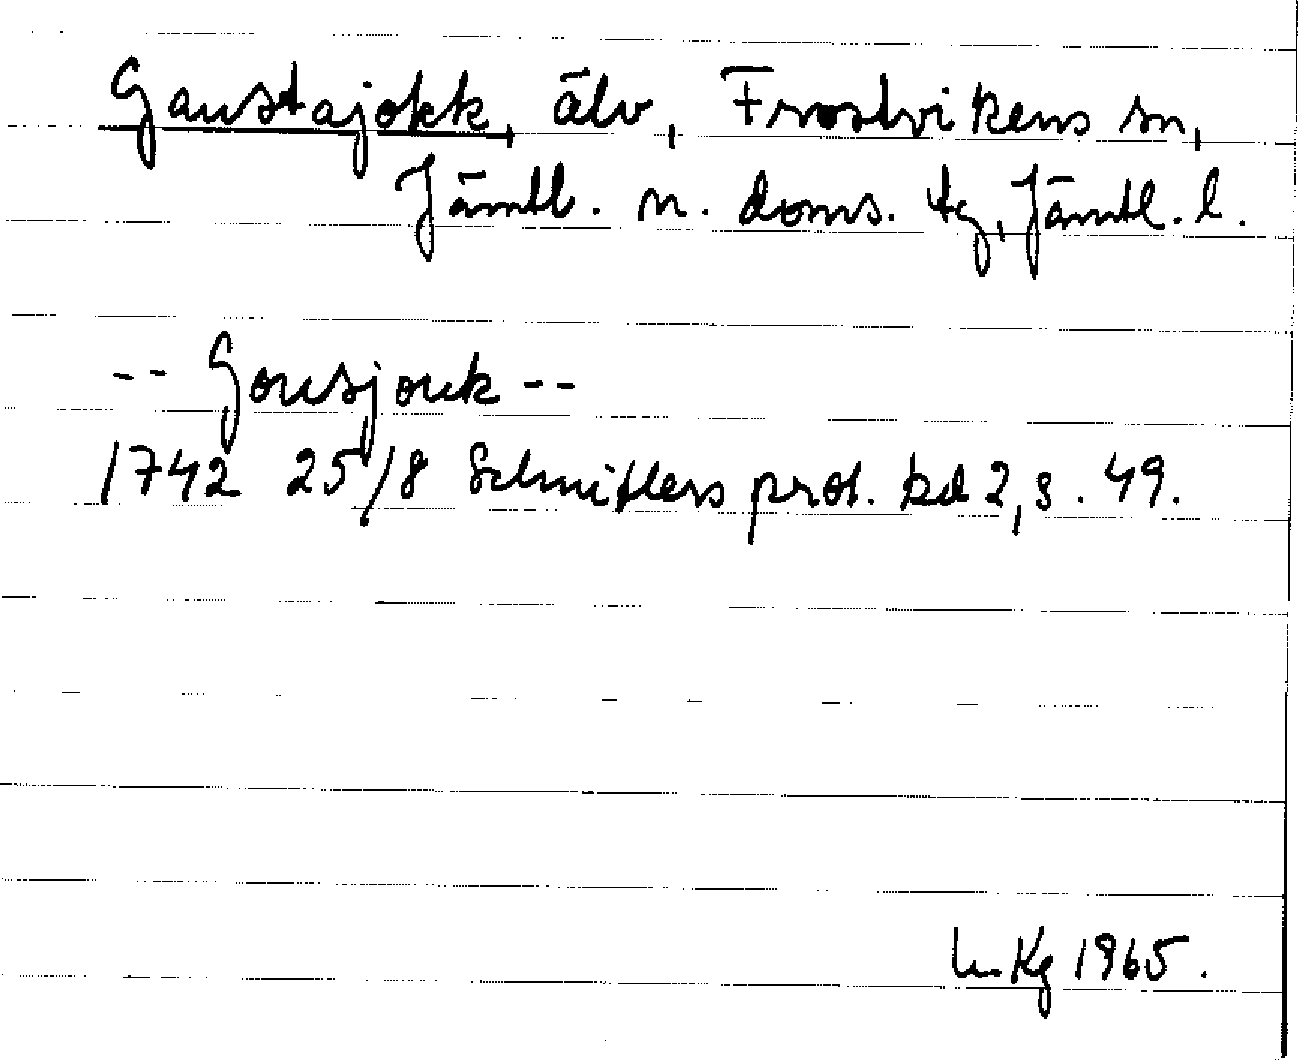 Gaustajokk, älv, Frostvikens sn,
Jämtl. n. doms. tg, Jämtl. l.
-- Gousjouk --
1742 25/8 Schnitlers prot. bd 2, s. 49.
Kg 1965.